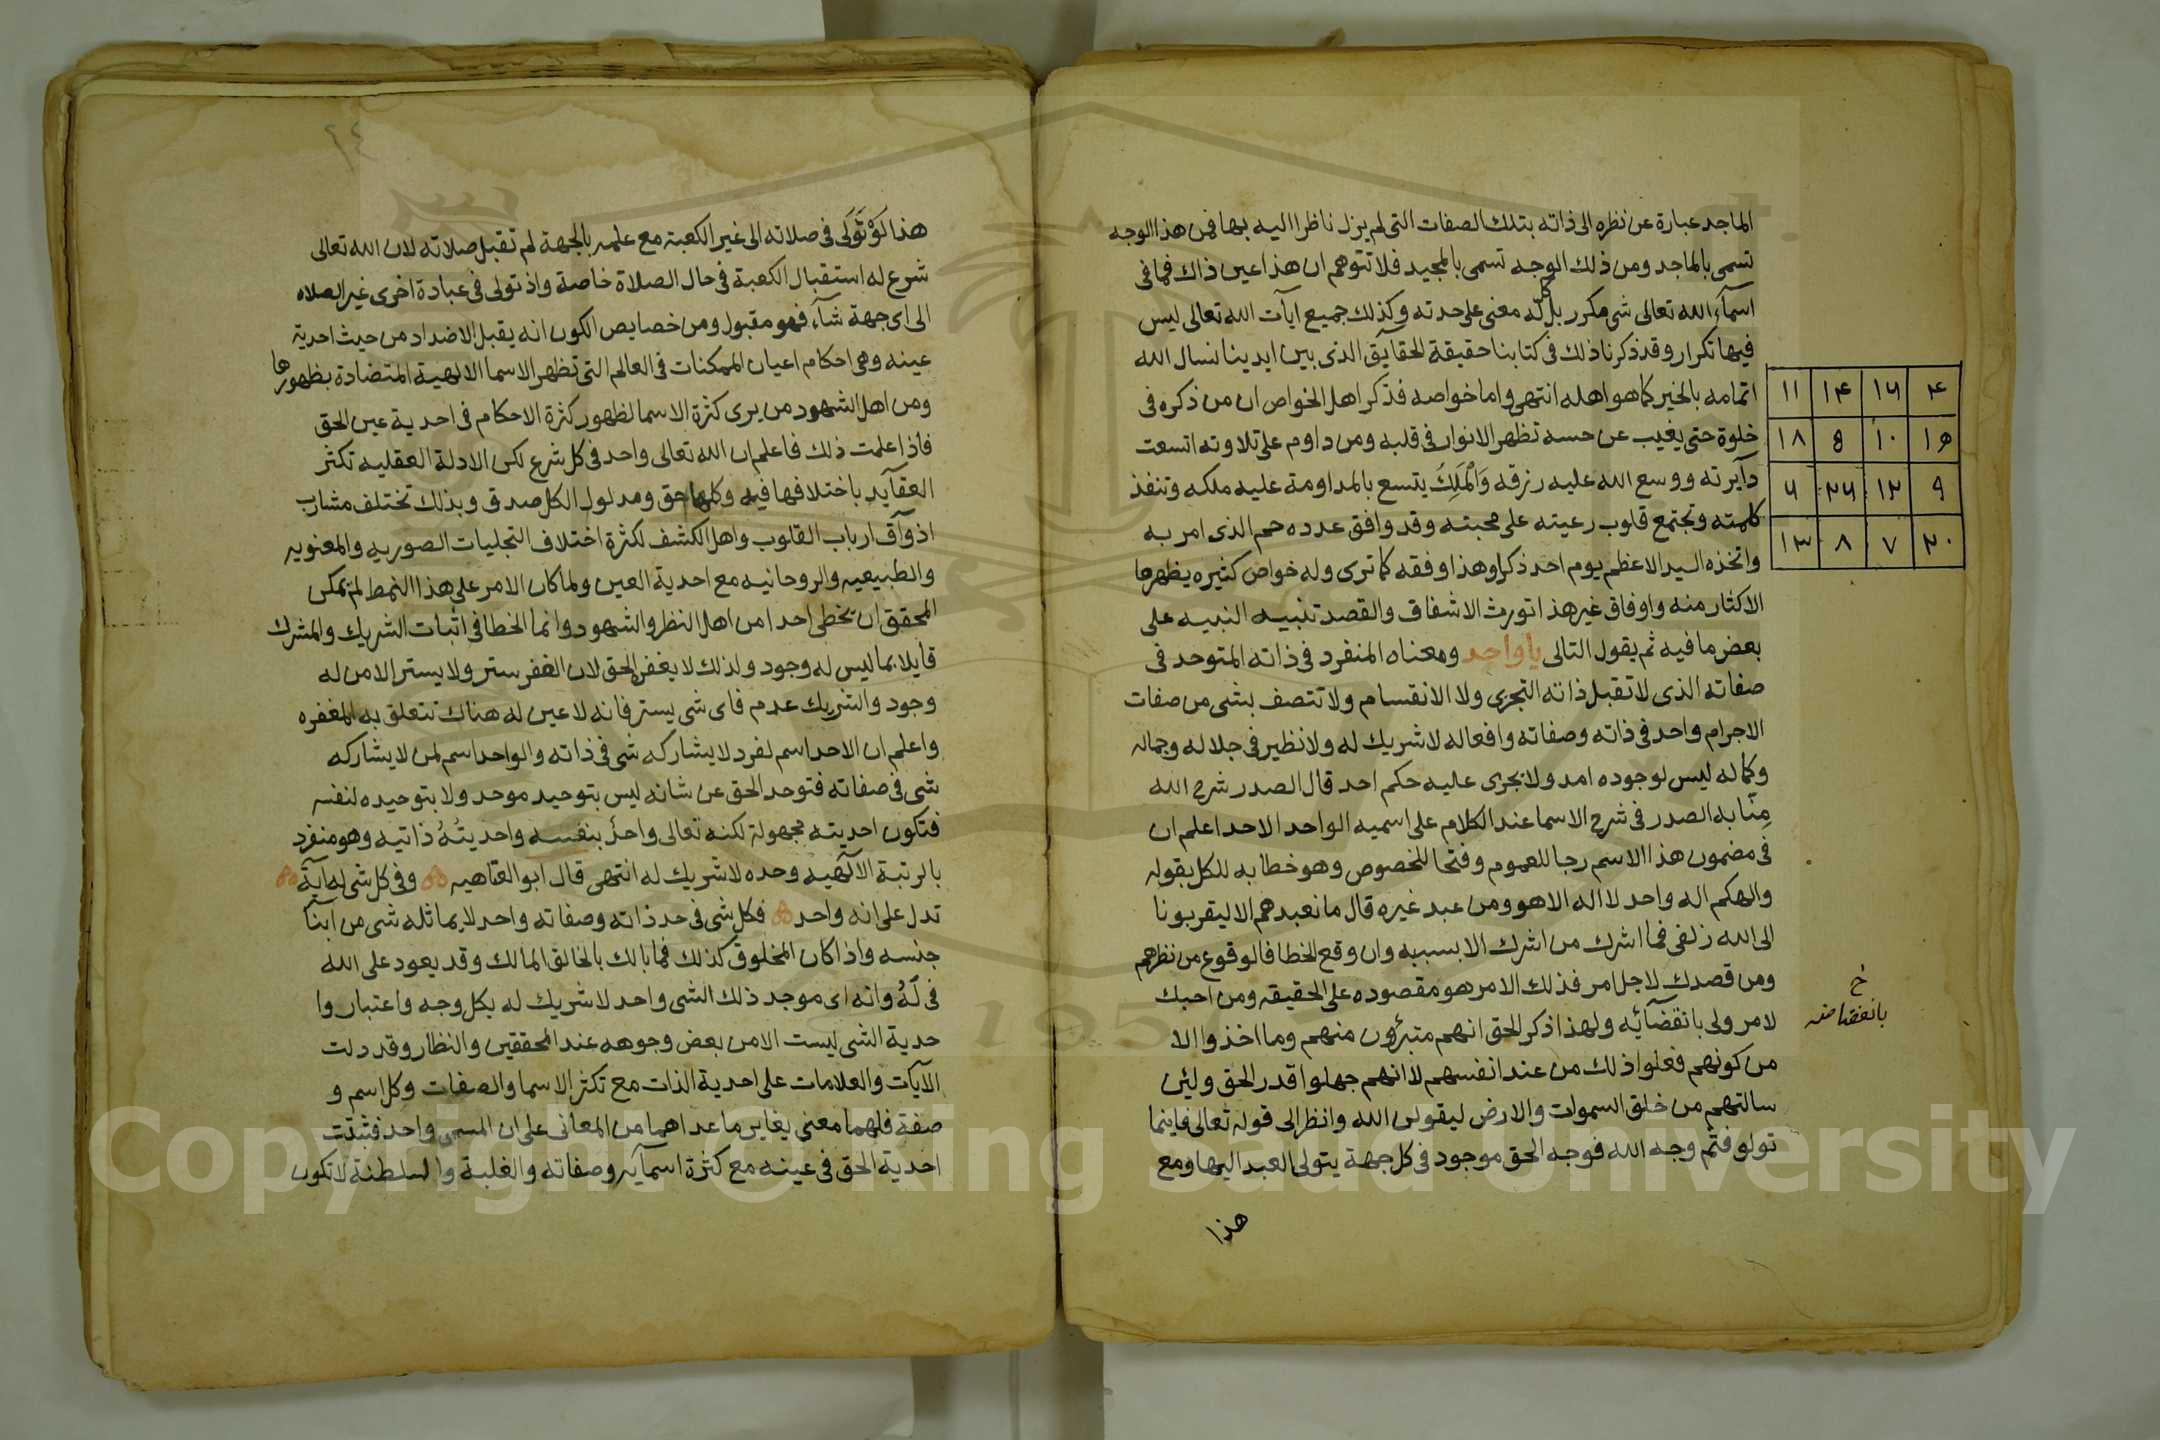 الماجد عبارة عن نظره الى ذاته بتلك الصفات التى لم يزل ناظرا اليه بها فمن هذا الوجه
تسمى بالماجد ومن ذلك الوجه تسمى بالمجيد فلا تتوهم ان هذا عين ذاك فما فى
اسمآء الله تعالى شى مكرر بل كل له معنى على حدته وكذلك جميع ايآت الله تعالى ليس
فيها تكرار وقد ذكرنا ذلك فى كتابنا حقيقة الحقايق الذى بين ايدينا نسال الله
اتمامه بالخير كما هو اهله انتهى واما خواصه فذكر اهل الخواص ان من ذكره فى
خلوة حتى يغيب عن حسه تظهر الانوار فى قلبه ومن داوم على تلاوته اتسعت
دآيرته ووسع الله عليه رزقه وَالْمَلِكُ يتسع بالمداومة عليه ملكه وتنفذ
كلمته وتجتمع قلوب رعيته على محبته وقد وافق عدده حم الذى امر به
واتخذه السيد الاعظم يوم احد ذكرا وهذا وفقه كما ترى وله خواص كثيره يظهرها
الاكثار منه واوفاق غير هذا تورث الاشفاق والقصد تنبيه النبيه على
بعض ما فيه ثم يقول التالى يا واحد ومعناه المنفرد فى ذاته المتوحد فى
صفاته الذى لا تقبل ذاته التجزى ولا الانقسام ولا تتصف بشى من صفات
الاجرام واحد فى ذاته وصفاته وافعاله لا شريك له ولا نظير فى جلاله وجماله
وكماله ليس لوجوده امد ولا يجرى عليه حكم احد قال الصدر شرح الله
مِنّا به الصدر فى شرح الاسما عند الكلام على اسميه الواحد الاحد اعلم ان
فى مضمون هذا الاسم رجا للعموم وفتحا للخصوص وهو خطابه للكل بقوله
والهكم اله واحد لا اله الا هو ومن عبد غيره قال ما نعبدهم الا ليقربونا
الى الله زلفى فما اشرك من اشرك الا بسببه وان وقع الخطا فالوقوع من نظرهم
ومن قصدك لاجل امر فذلك الامر هو مقصوده على الحقيقه ومن احبك
لامر ولى بانقضآئه ولهذا ذكر الحق انهم متبرؤن منهم وما اخذوا الا
من كونهم فعلوا ذلك من عند انفسهم لا انهم جهلوا قدر الحق ولئن
سالتهم من خلق السموات والارض ليقولن الله وانظر الى قوله تعالى فاينما
تولو فثم وجه الله فوجه الحق موجود فى كل جهة يتولى العبد اليها ومع
هذا
۴ ۱۶ ۱۴ ۱۱
۱۰ ۱۸
۹ ۱۲ ۲۶ ۶
۲۰ ۷ ۸ ۱۳
خ
هذا لَوْ تَوَلى فى صلاته الى غير الكعبة مع علمه بالجهة لم تقبل صلاته لان الله تعالى
شرع له استقبال الكعبة فى حال الصلاة خاصة واذ تولى فى عبادة اخرى غير الصلاه
الى اى جهة شآء فهو مقبول ومن خصايص الكون انه يقبل الاضداد من حيث احدية
عينه وهى احكام اعيان الممكنات فى العالم التى تظهر الاسما الالهية المتضادة بظهورها
ومن اهل الشهود من يرى كثرة الاسما لظهور كثرة الاحكام فى احدية عين الحق
فاذا علمت ذلك فاعلم ان الله تعالى واحد فى كل شرع لكن الادلة العقليه تكثر
العقآيد باختلافها فيه وكلها حق ومدلول الكل صدق وبذلك تختلف مشارب
اذوآق ارباب القلوب واهل الكشف لكثرة اختلاف التجليات الصوريه والمعنويه
والطبيعيه والروحانيه مع احدية العين ولما كان الامر على هذا النمط لم تمكن
المحقق ان تخطى احدا من اهل النظر والشهود وانما الخطا فى اثبات الشريك والمشرك
قايلا بما ليس له وجود ولذلك لا يغفر الحق لان الغفر ستر ولا يستر الا من له
وجود والشريك عدم فاى شى يستر فانه لا عين له هناك تتعلق به المغفره
واعلم ان الاحد اسم لفرد لا يشاركه شى فى ذاته والواحد اسم لمن لا يشاركه
شى فى صفاته فتوحد الحق عن شانه ليس بتوحيد موحد ولا بتوحيده لنفسه
فتكون احديته مجهولة لكنه تعالى واحدٌ بنفسه واحديتُهُ ذاتيه وهو منفرد
بالرتبة الالهيه وحده لا شريك له انتهى قال ابو العتاهيه وفى كل شى له آية
تدل على انه واحد فكل شى فى حد ذاته وصفاته واحد لا يماثله شى من ابنآ
جنسه واذا كان المخلوق كذلك فما بالك بالخالق المالك وقد يعود على الله
فى لَهُ وانه اى موجد ذلك الشى واحد لا شريك له بكل وجه واعتبار وا
حدية الشى ليست الا من بعض وجوهه عند المحققين والنظار وقد دلت
الآيآت والعلامات على احدية الذات مع تكثر الاسما والصفات وكل اسم و
صفة فلهما معنى يغاير ما عداهما من المعانى على ان المسمى واحد فتبتت
احدية الحق فى عينه مع كثرة اسمآيه وصفاته والغلبة والسلطنة لا تكون
Copyright © King Saud University